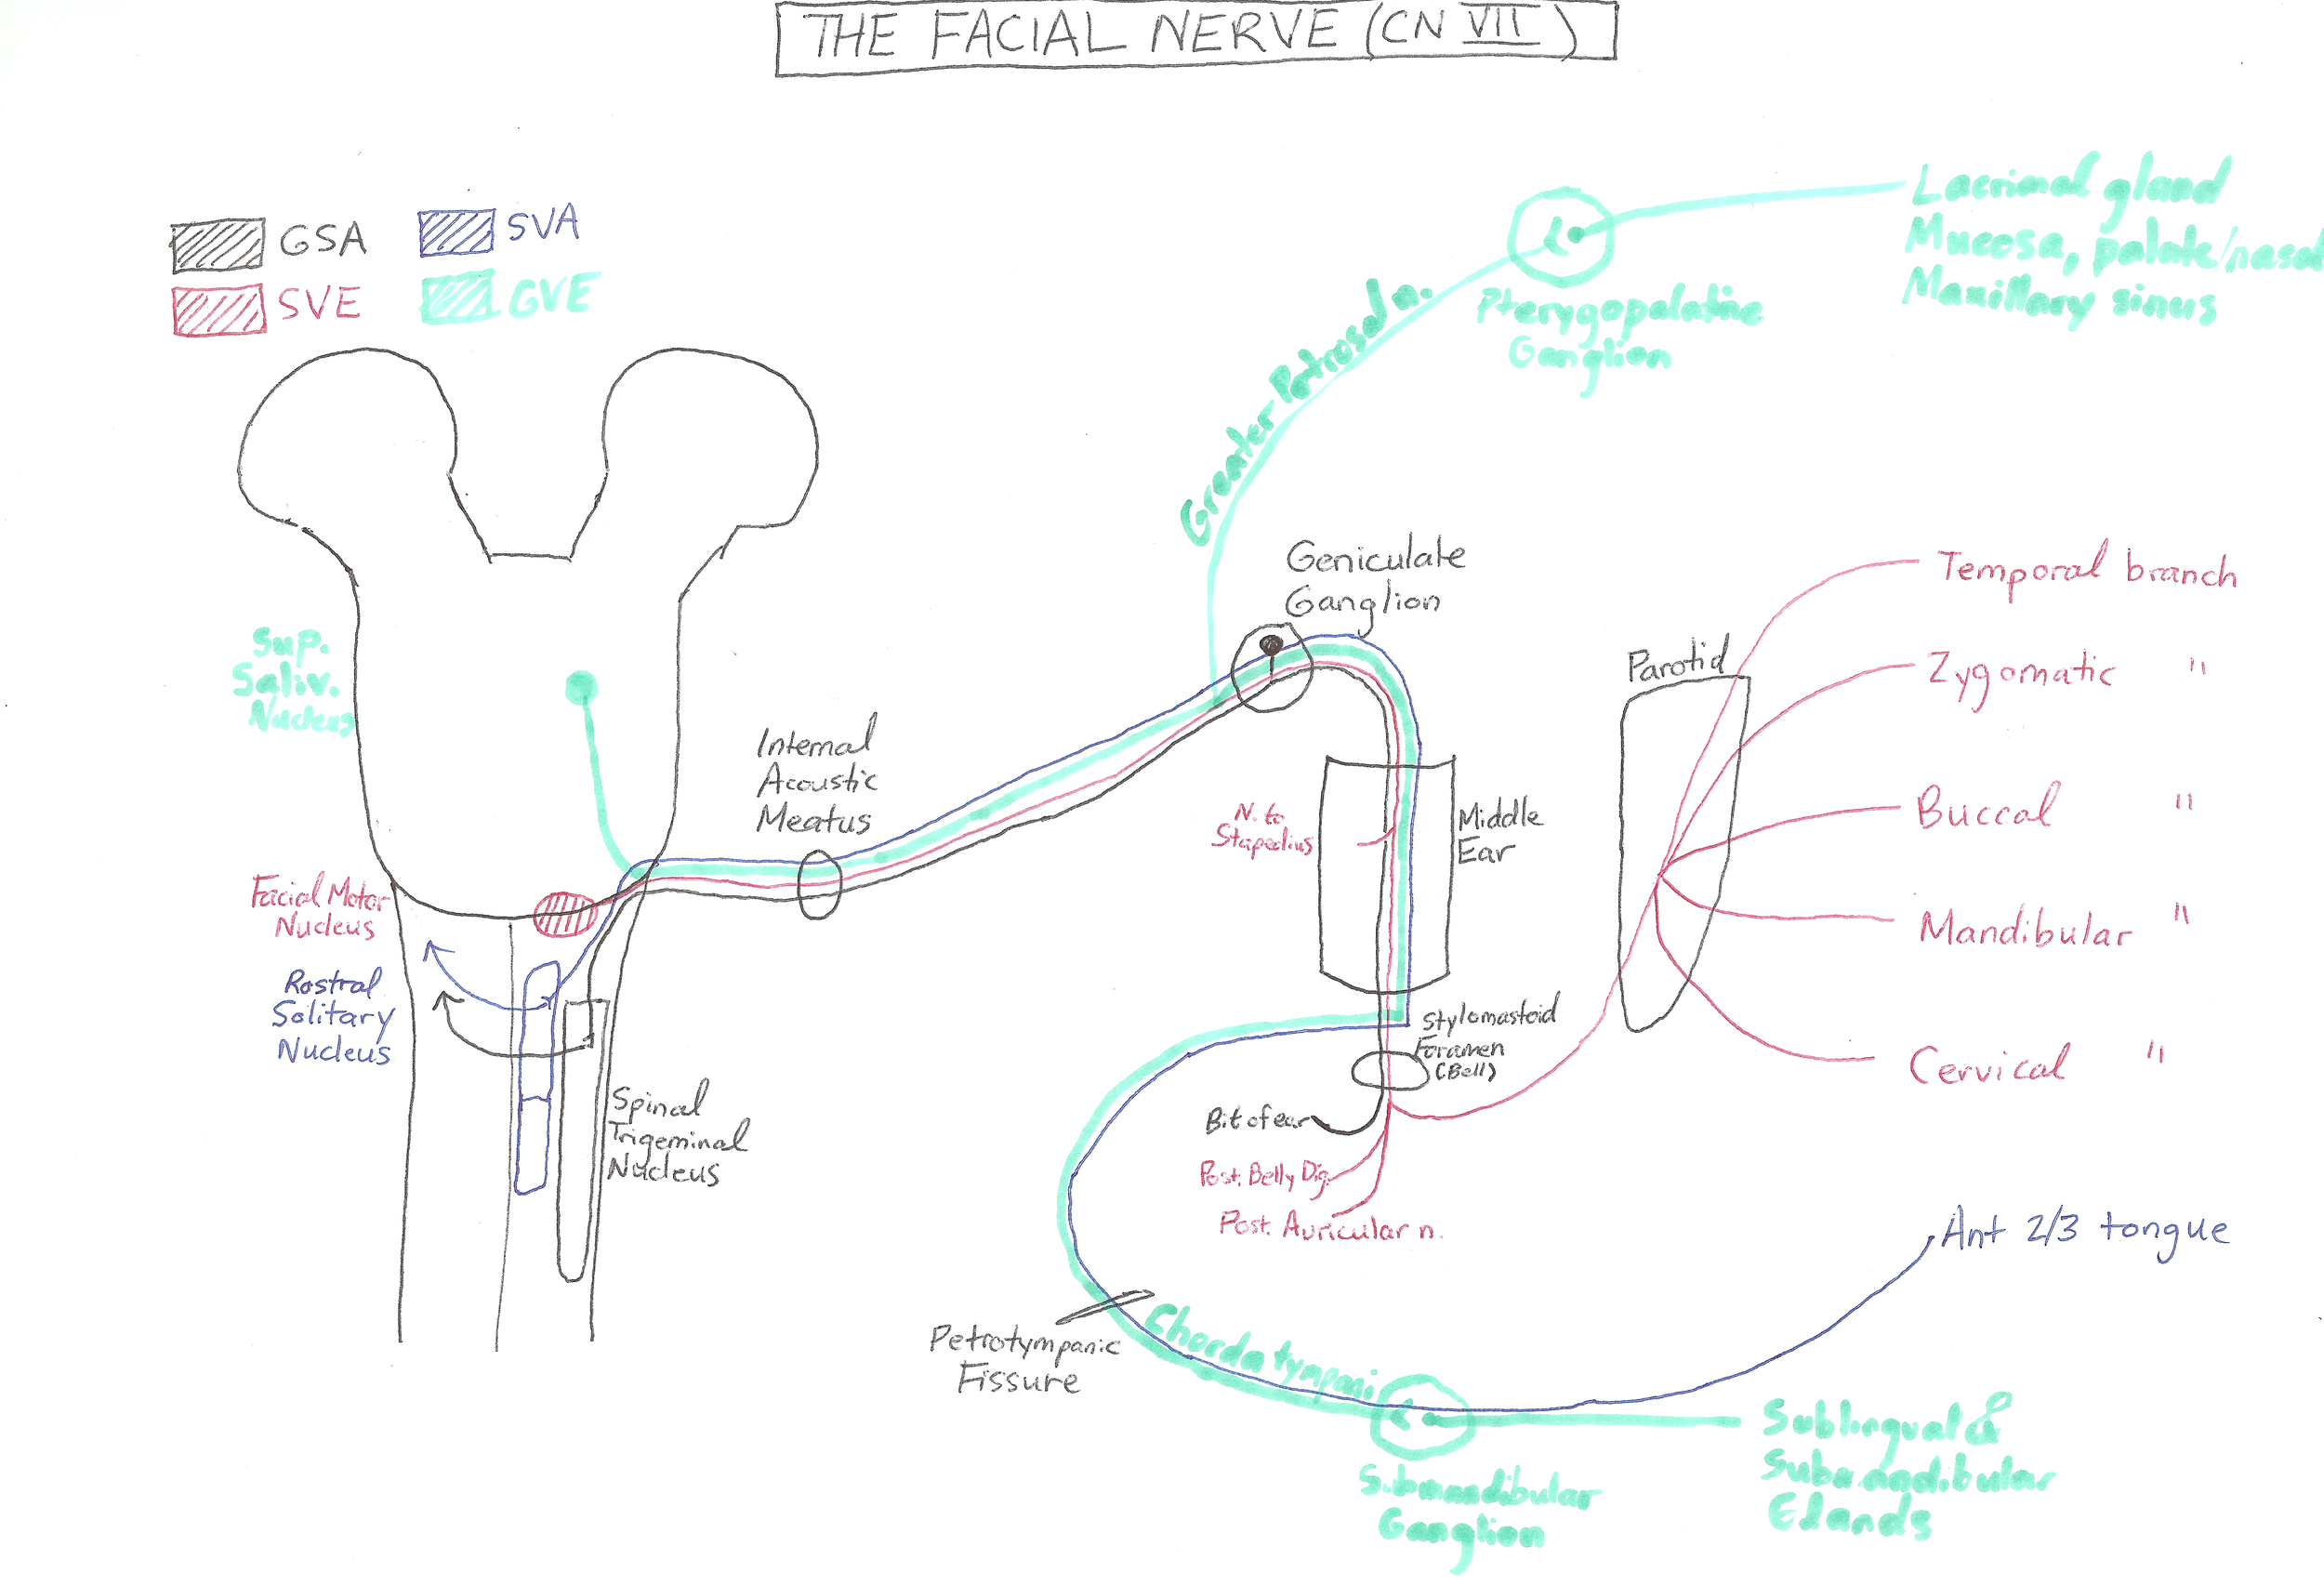 THE FACIAL NERVE (CN VII)
GSA
SVA
SVE
GVE
Lacrimal gland
Mucosa, palate/nasal
Maxillary sinus
Pterygopalatine
Ganglion
Greater Petrosal n.
Geniculate
Ganglion
Sup.
Saliv.
Nucleus
Internal
Acoustic
Meatus
Facial Motor
Nucleus
Rostral
Solitary
Nucleus
Spinal
Trigeminal
Nucleus
N. to
Stapedius
Middle
Ear
Parotid
Temporal branch
Zygomatic "
Buccal "
Mandibular "
Cervical "
Stylomastoid
Foramen
(Bell)
Bit of ear
Post. Belly Dig.
Post. Auricular n.
Petrotympanic
Fissure
Chorda tympani
Ant 2/3 tongue
Submandibular
Ganglion
Sublingual &
Submandibular
Glands